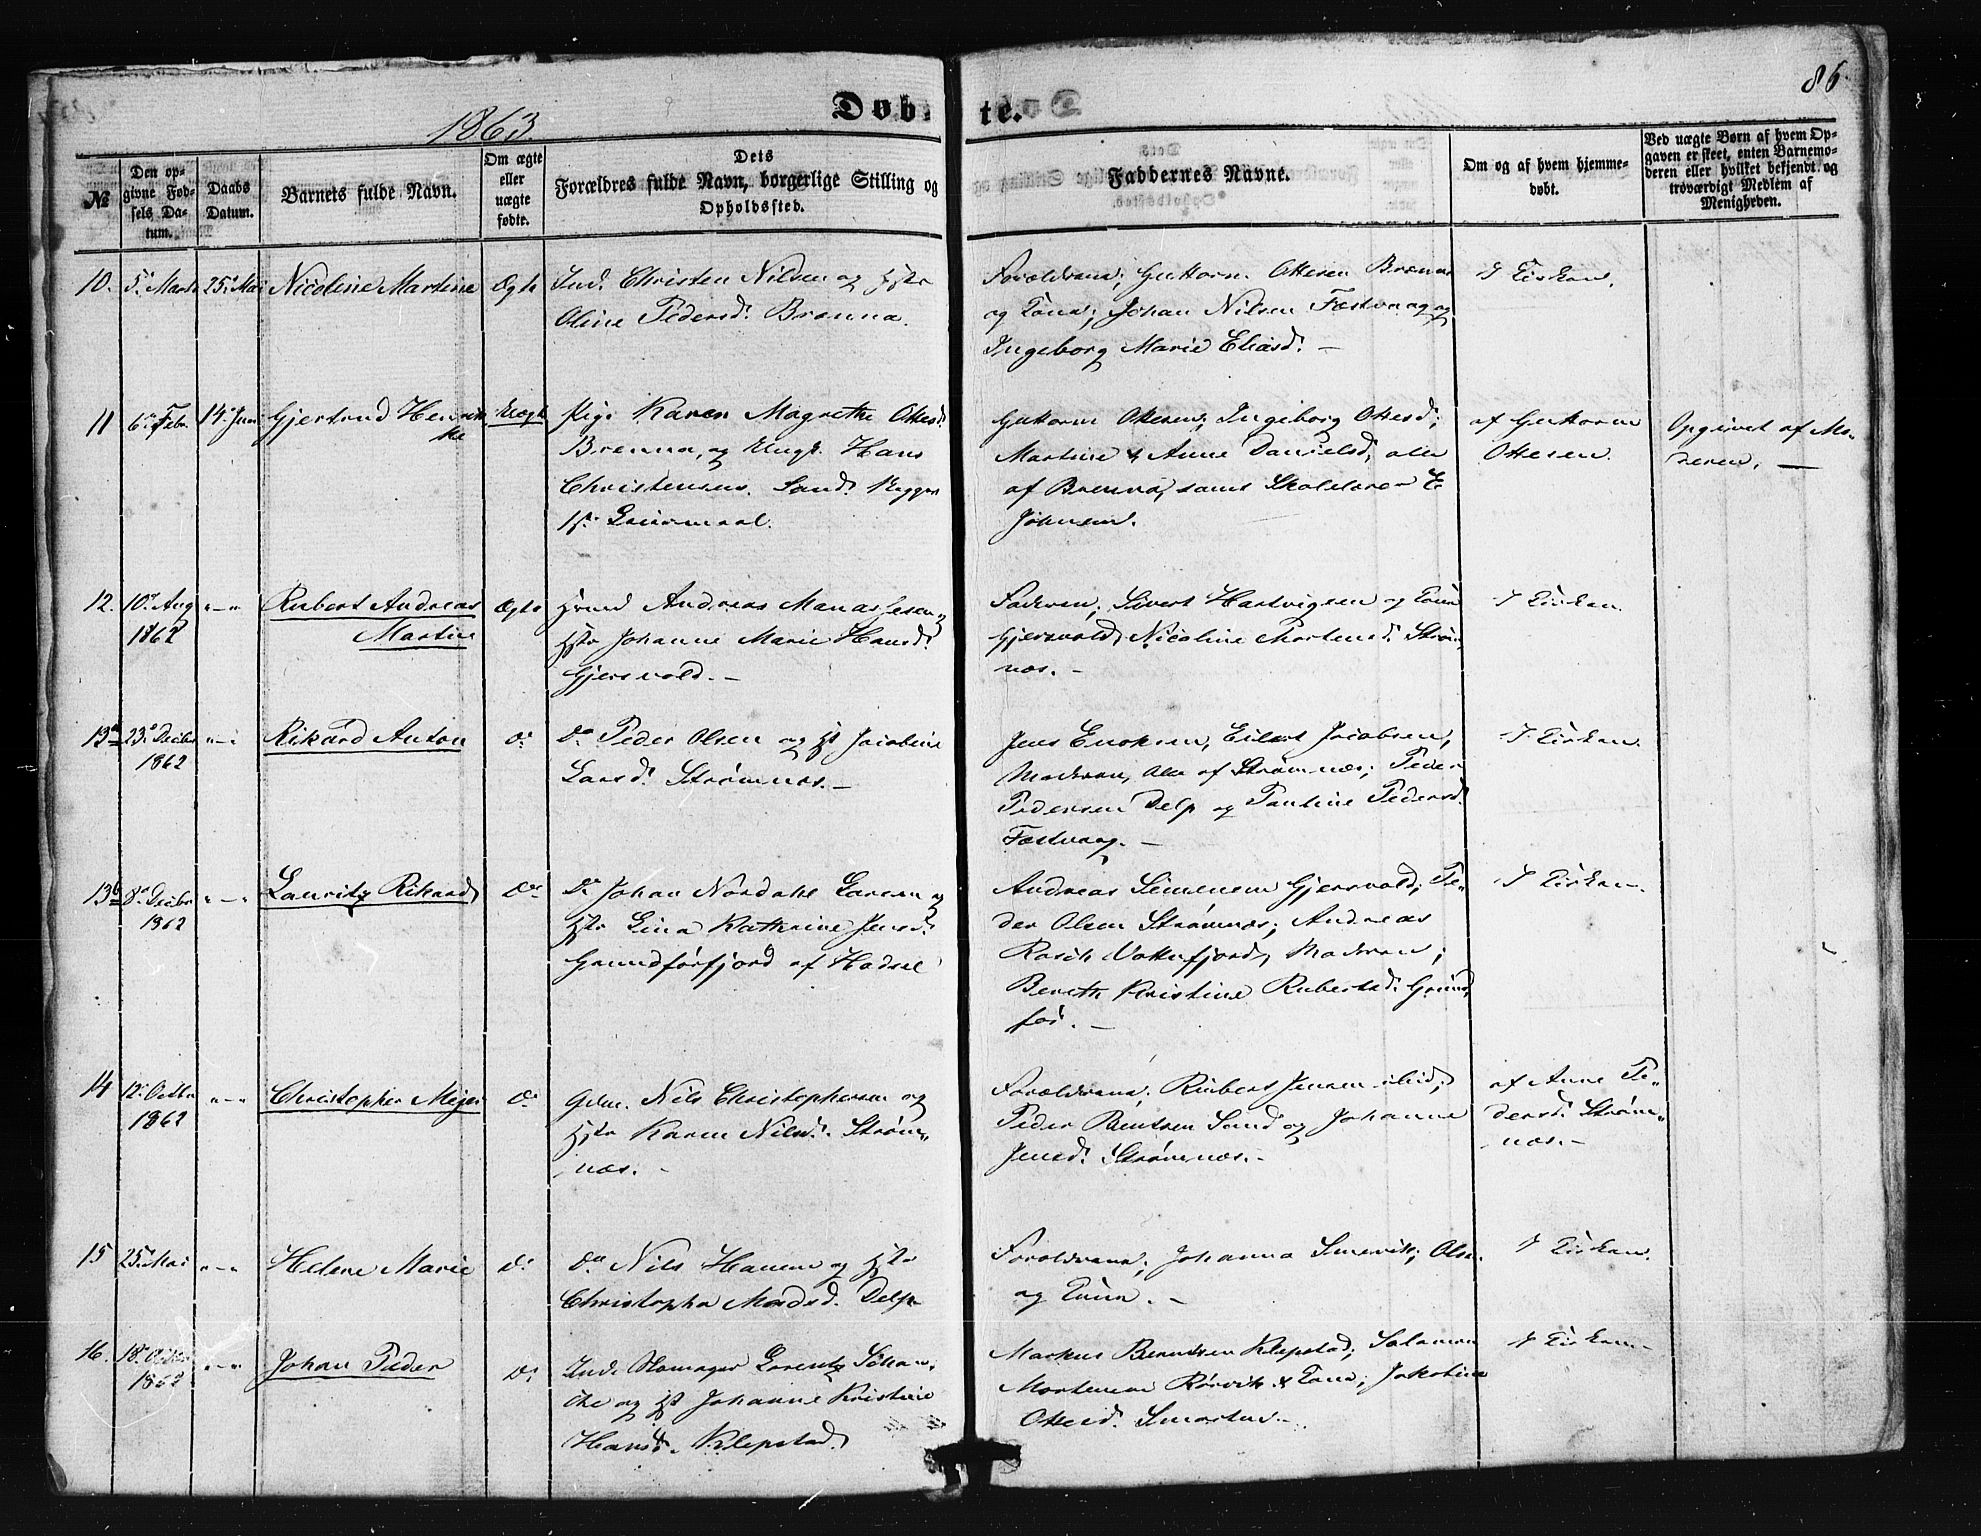 86
1863
Døbte.
№
Den op-
givne Fød-
sels Da-
tum.
Daabs
Datum.
Barnets fulde Navn.
Om ægte
eller
uægte
fødte.
Dets
Forældres fulde Navn, borgerlige Stilling og
Opholdssted.
Faddernes Navne.
Om og af hvem hjemme-
døbt.
Ved uægte Børn af hvem Op-
gaven er skeet, enten Barnemo-
deren eller hvilket bekjendt og
troværdigt Medlem af
Menigheden.
10. 5. Marts 25. Mai Nicoline Martine Ægte Ind. Christen Nilsen og Hst
Oline Pedersd. Brenna.
Forældrene; Guttorm Ottesen Brenna
og Kone; Johan Nilsen Festvaag og
Ingeborg Marie Eliasd. —
I Kirken.
11 6. Febr. 14. Juni Gjertrud Henrik-
ke
Uægte Pige Karen Magrethe Ottesd.
Brenna, og Ungk. Hans
Christensen Sand.
1st Leiermaal.
Guttorm Ottesen; Ingeborg Ottesd;
Martine & Anne Danielsd, alle
af Brenna, samt Skolelærer E.
Johnsen.
af Guttorm
Ottesen.
Opgivet af Mo-
deren. —
12. 10. Aug
1862
"—" Rubert Andreas
Martin
Ægte Hmd Andreas Manassesen og
Hst Johanne Marie Hansd.
Gjersvold. —
Faderen; Sivert Hartvigsen og Kone
Gjersvold, Nicoline Mortensd. Strøm-
næs. —
I Kirken.
13a 23. Decbr
1862
"—" Rikard Anton do. do. Peder Olsen og H Jacobine
Larsd. Strømnæs. —
Jens Enoksen, Eilert Jacobsen,
Moderen, Alle af Strømnæs; Peder
Pedersen Delp og Pauline Pedersd.
Festvaag. —
I Kirken.
13b 8. Decbr
1862
"—" Lauritz Rikard do. Do. Johan Nordahl Larsen og
Hst Lina Kathrine Jensd.
Grundførfjord af Hadsel
Andreas Simensen Gjersvold; Pe-
der Olsen Strømnæs; Andreas
Rasch Vatterfjord, Moderen;
Bereth Kristine Rubertsd. Grund-
før. —
I Kirken.
14 12. Octbr
1862
"—" Christopher Mejer do. Gdm. Nils Christophersen og
Hst Karen Nilsd. Strøm-
næs. —
Forældrene; Rubert Jensen ibid;
Peder Bentsen Sand og Johanne
Jensd. Strømnæs. —
af Anne Pe-
dersd. Strøm-
næs. —
15 25. Mai "—" Helene Marie do. do. Nils Hansen og Hst
Christopha Madsd. Delp
Forældrene; Johanna Smervik; Olsen
og Kone. —
I Kirken.
16. 18.
1862
"—" Johan Peder do. Ind. Lorentz Johan-
og H Johanne Kristine
Hansd. Klepstad.
Markus Berntsen Klepstad; Salamon
Mortensen Rørvik & Kone; Jakobine
Ottesd.
I Kirken